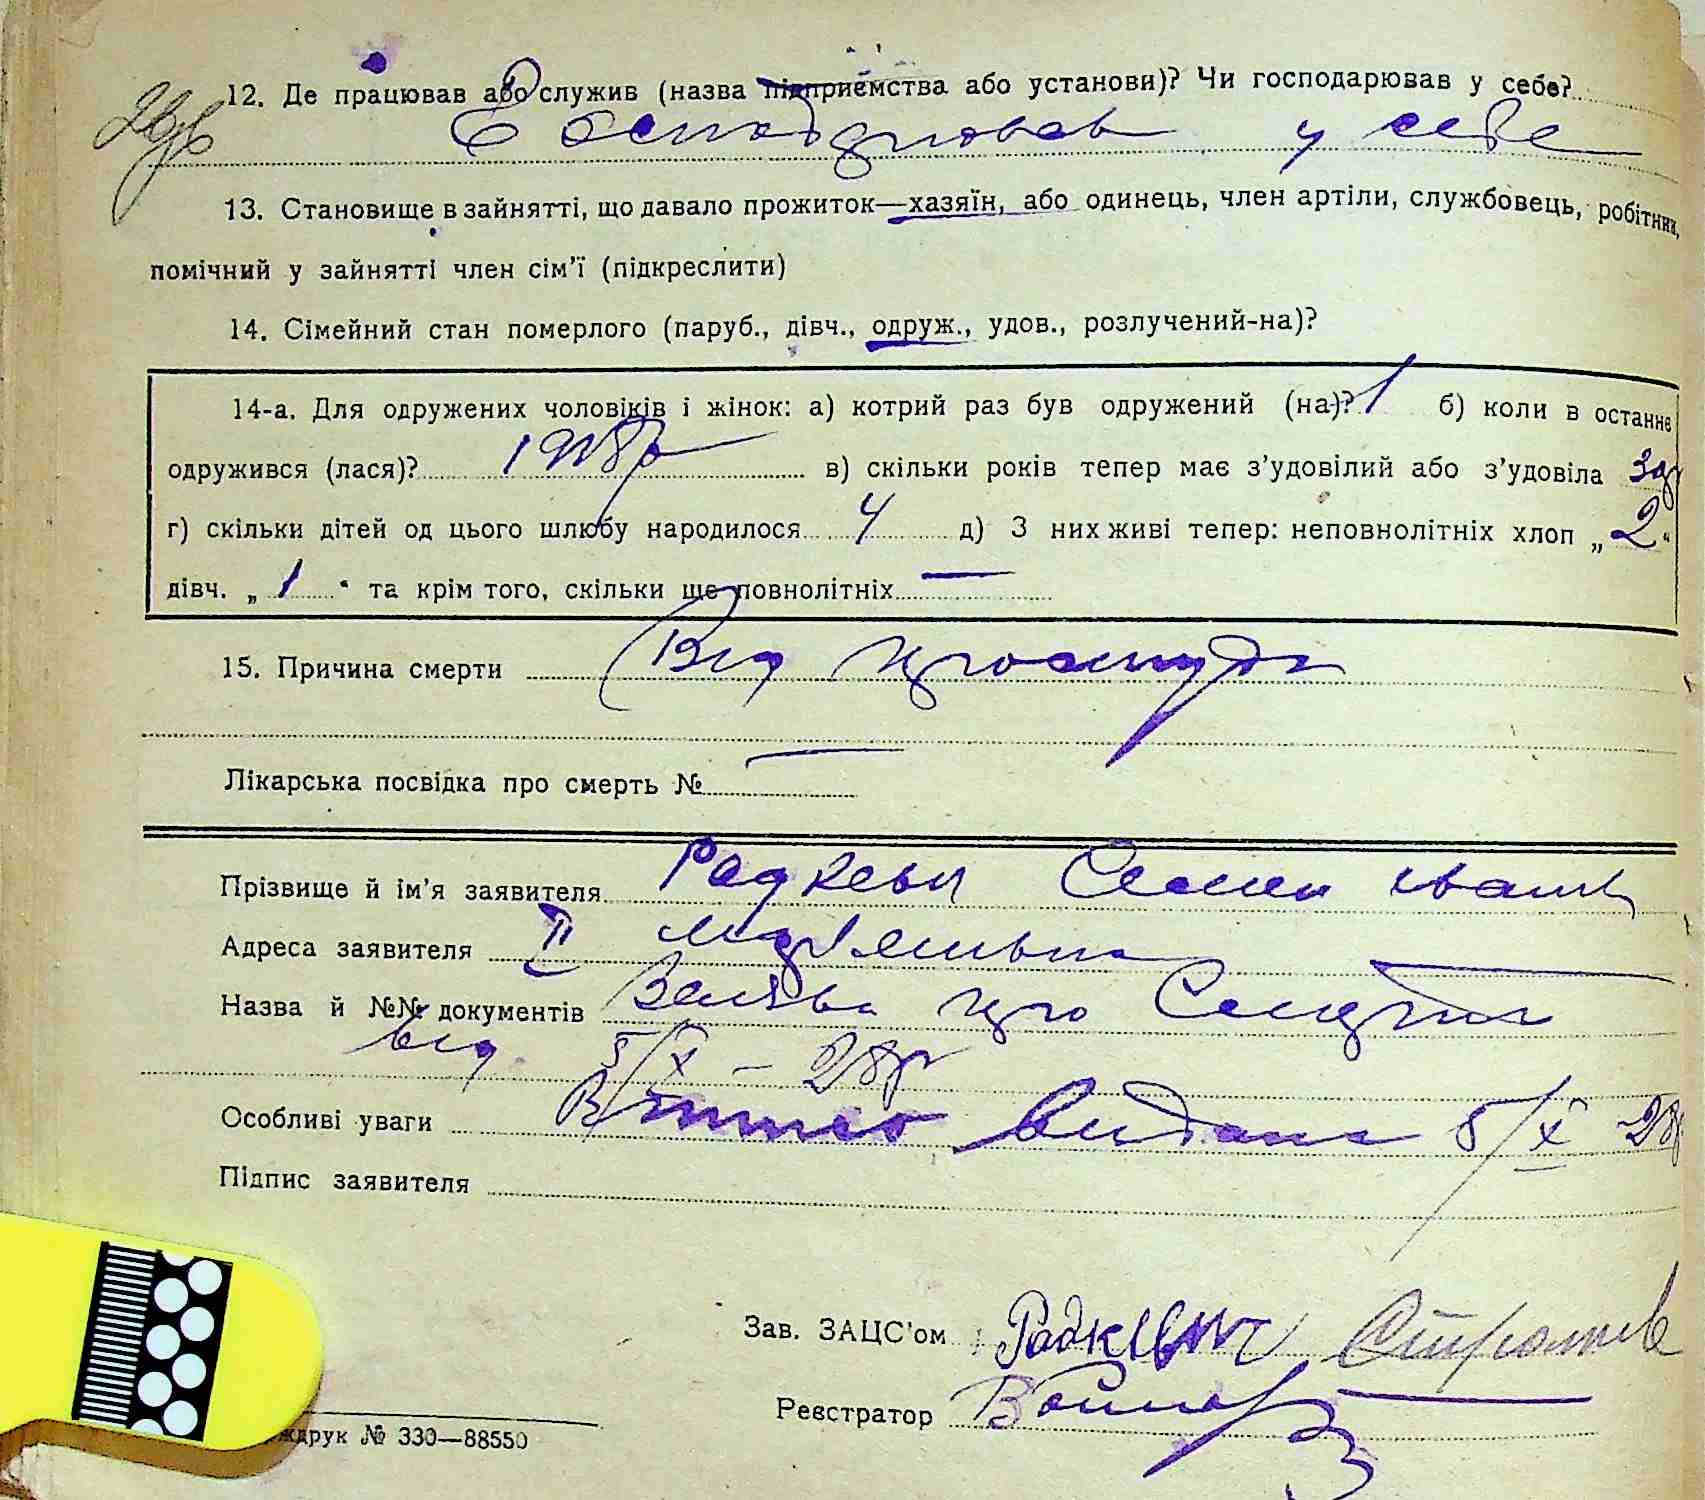 12. Де працював або служив (назва підприємства або установи)? Чи господарював у себе?
Господарював у себе
13. Становище в зайнятті, що давало прожиток—хазяїн, або одинець, член артіли, службовець, робітник,
помічний у зайнятті член сім’ї (підкреслити)
14. Сімейний стан померлого (паруб., дівч., одруж., удов., розлучений-на)?
14-а. Для одружених чоловіків і жінок: а) котрий раз був одружений (на)? 1 б) коли в останнє
одружився (лася)? в) скільки років тепер має з’удовілий або з’удовіла
г) скільки дітей од цього шлюбу народилося 4 д) З них живі тепер: неповнолітніх хлоп „ 2 “
дівч. „ 1 “ та крім того, скільки ще повнолітніх —
15. Причина смерти Від простуди
Лікарська посвідка про смерть № —
Прізвище й ім’я заявителя Радкевич Семен
Адреса заявителя
Назва й №№ документів Заява про смерть
від 5/X – 28р
Особливі уваги видана 5/X 28р
Підпис заявителя
Зав. ЗАЦС’ом Радкевич
Реєстратор
ждрук № 330—88550